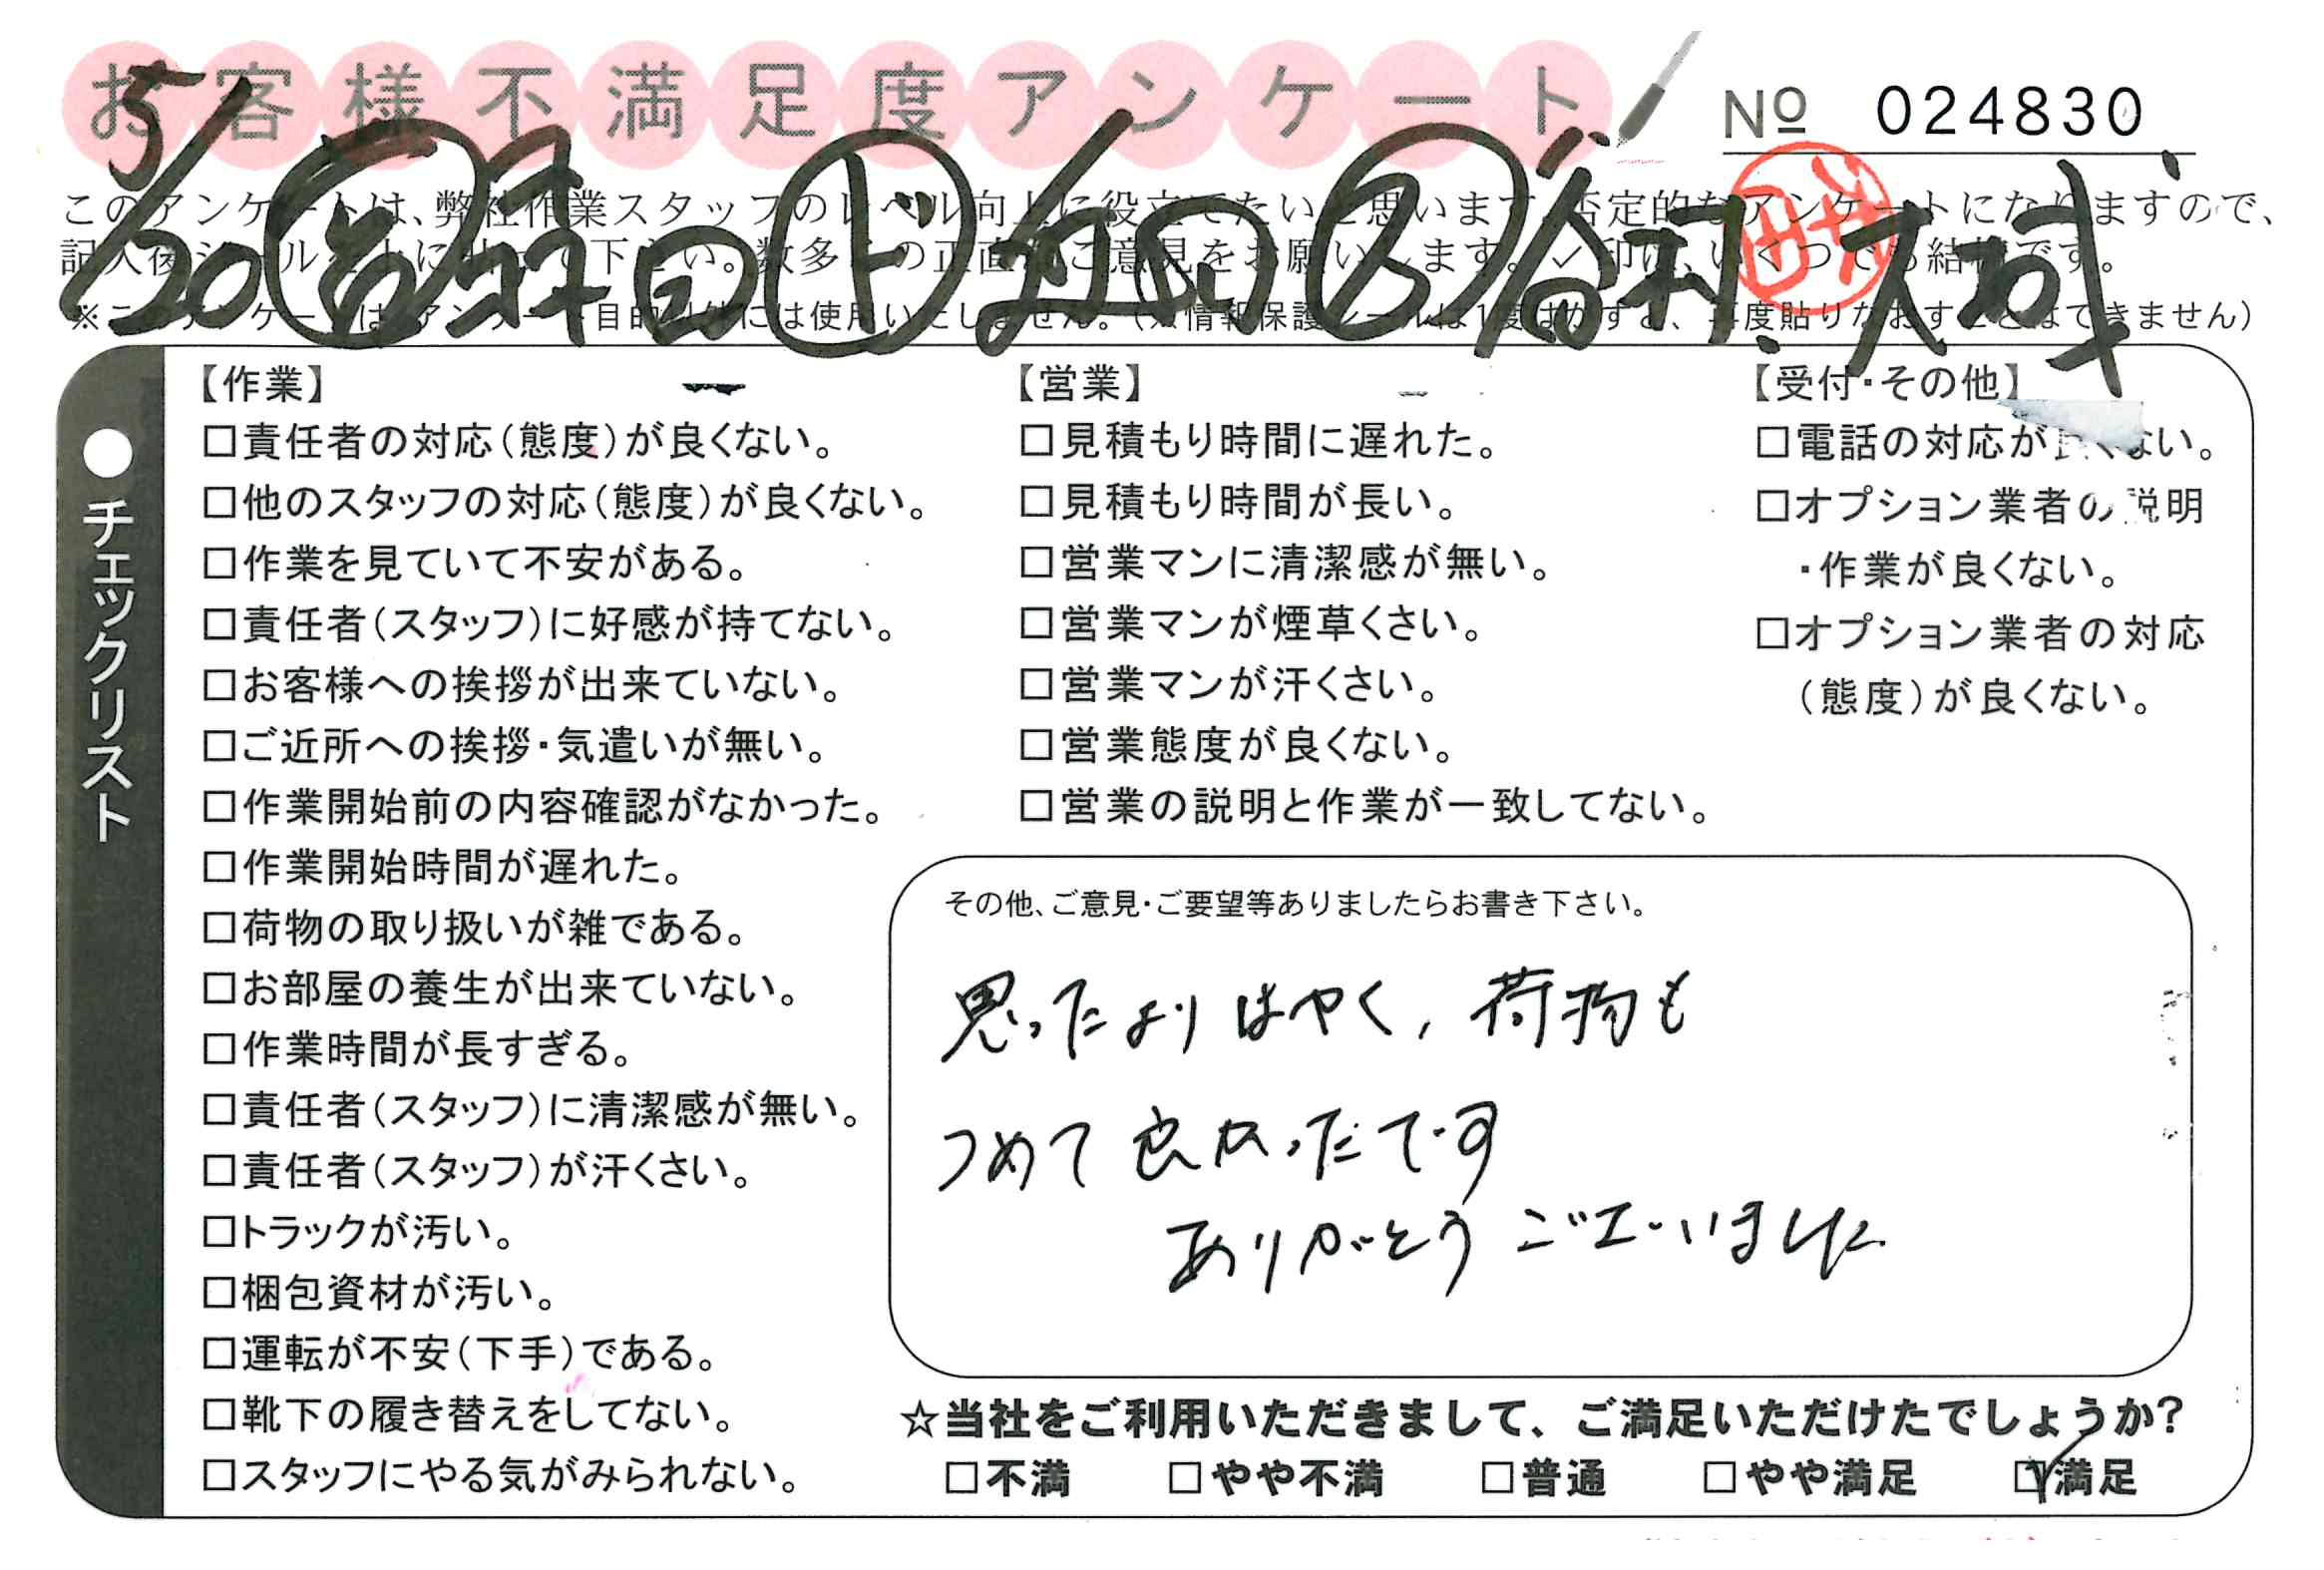 お客様不満足度アンケート
№ 024830
5/20
このアンケートは、弊社作業スタッフのレベル向上に役立てたいと思います。否定的なアンケートになりますので、
記入後シールを上に貼って下さい。数多くの正直なご意見をお願いします。✓印は、いくつでも結構です。
※このアンケートは、アンケート目的以外には使用いたしません。(※情報保護シールは1度はがすと、再度貼りなおすことはできません)
●チェックリスト
【作業】
□責任者の対応(態度)が良くない。
□他のスタッフの対応(態度)が良くない。
□作業を見ていて不安がある。
□責任者(スタッフ)に好感が持てない。
□お客様への挨拶が出来ていない。
□ご近所への挨拶・気遣いが無い。
□作業開始前の内容確認がなかった。
□作業開始時間が遅れた。
□荷物の取り扱いが雑である。
□お部屋の養生が出来ていない。
□作業時間が長すぎる。
□責任者(スタッフ)に清潔感が無い。
□責任者(スタッフ)が汗くさい。
□トラックが汚い。
□梱包資材が汚い。
□運転が不安(下手)である。
□靴下の履き替えをしてない。
□スタッフにやる気がみられない。
【営業】
□見積もり時間に遅れた。
□見積もり時間が長い。
□営業マンに清潔感が無い。
□営業マンが煙草くさい。
□営業マンが汗くさい。
□営業態度が良くない。
□営業の説明と作業が一致してない。
【受付・その他】
□電話の対応が良くない。
□オプション業者の説明
・作業が良くない。
□オプション業者の対応
(態度)が良くない。
その他、ご意見・ご要望等ありましたらお書き下さい。
思ったよりはやく、荷物も
つめて良かったです
ありがとうございました
☆当社をご利用いただきまして、ご満足いただけたでしょうか?
□不満 □やや不満 □普通 □やや満足 ☑満足